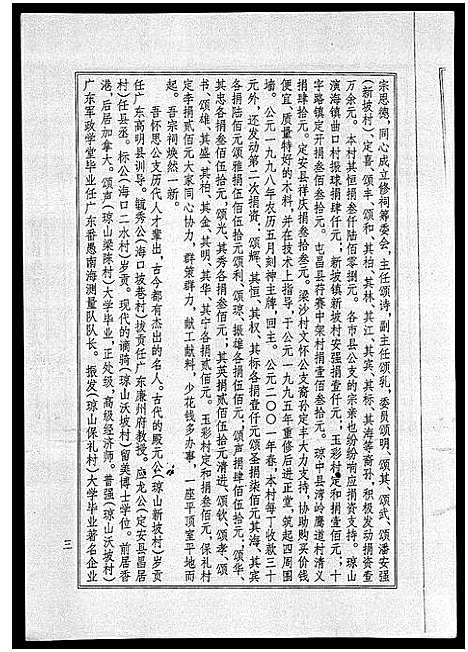 宗恩德，同心成立修祠筹委会，主任颂诗，副主任颂乳，委员颂明、颂其、颂武、颂潘安强
(新坡村)、定喜、颂丰、颂和、其柏、其林、其江、其宾、其标、其海等裔孙，积极发动捐资查
万余元。本村其恒捐叁仟陆佰零捌元。各市县公支的宗亲也纷纷响应捐资支持。琼山
演海镇曲口村振球捐肆仟元；新坡镇新坡村安强捐壹仟元；玉彩村定和捐壹佰元；十
字路镇定开捐叁佰叁拾元。屯昌县荇赛中架村捐壹佰叁拾元。琼中县湾岭鹰道村清义
捐肆拾元。定安县祥庆捐叁拾叁元。梁沙村文怀公支裔孙定丰大力支持，协助购买价钱
便宜、质量特好的木料，并在技术上指导，于公元一九九五年重修后进正堂，筑起四周围
墙。公元一九九八年农历五月刻神主牌，回主。公元二〇〇一年春，本村每丁收款三十
元外，还发动第二次捐资：颂辉、其恒、其权、其标各捐壹仟元颂圣捐柒佰元其海、其宾
各捐陆佰元颂雅捐伍佰伍拾元颂利、颂琼、振雄各捐伍佰元；颂声捐肆佰伍拾元、颂华、
其忠各捐叁佰伍拾元，颂光、其秀各捐叁佰元；其英捐贰佰伍拾元清进、颂钦、颂孝、颂
书、颂雄、其盛、其柏、其金、其明、其华、其宁各捐贰佰元。玉彩村定和捐叁佰元，保礼村
定李捐贰佰元大家同心协力，群策群力，献工献料，少花钱多办事，一座平顶室平地而
起。吾宗祠焕然一新。
吾怀思公支历代人才辈出，古今都有杰出的名人。古代的殿元公(琼山新坡村)岁贡
任广东高明县训导。毓秀公(海口坡巷村)拔贡任广东廉州府教授。应龙公(定安县昌居
村)任县丞。标公(海口二水村)岁贡。现代的谪骑(琼山沃坡村)留美博士学位。前居香
港，后居加拿大。颂声(琼山梁陈村)大学毕业，正处级，高级经济师。普强(琼山沃坡村)
广东军政学堂毕业任广东番愚南海测量队队长。振发(琼山保礼村)大学毕业著名企业
三